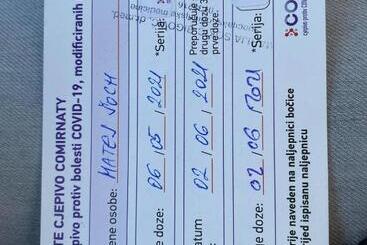 TE CJEPIVO COMIRNATY
pivo protiv bolesti COVID-19, modificiranih
ene osobe: MATEJ ŠOCH
ne doze: 06 / 05 / 2021 *Serija:
Preporuče
drugu dozu 3
prve doze.
atum 02 / 06 / 2021
e doze: 02 / 06 / 2021 *Serija:
rije naveden na naljepnici bočice
rijed ispisanu naljepnicu
CO